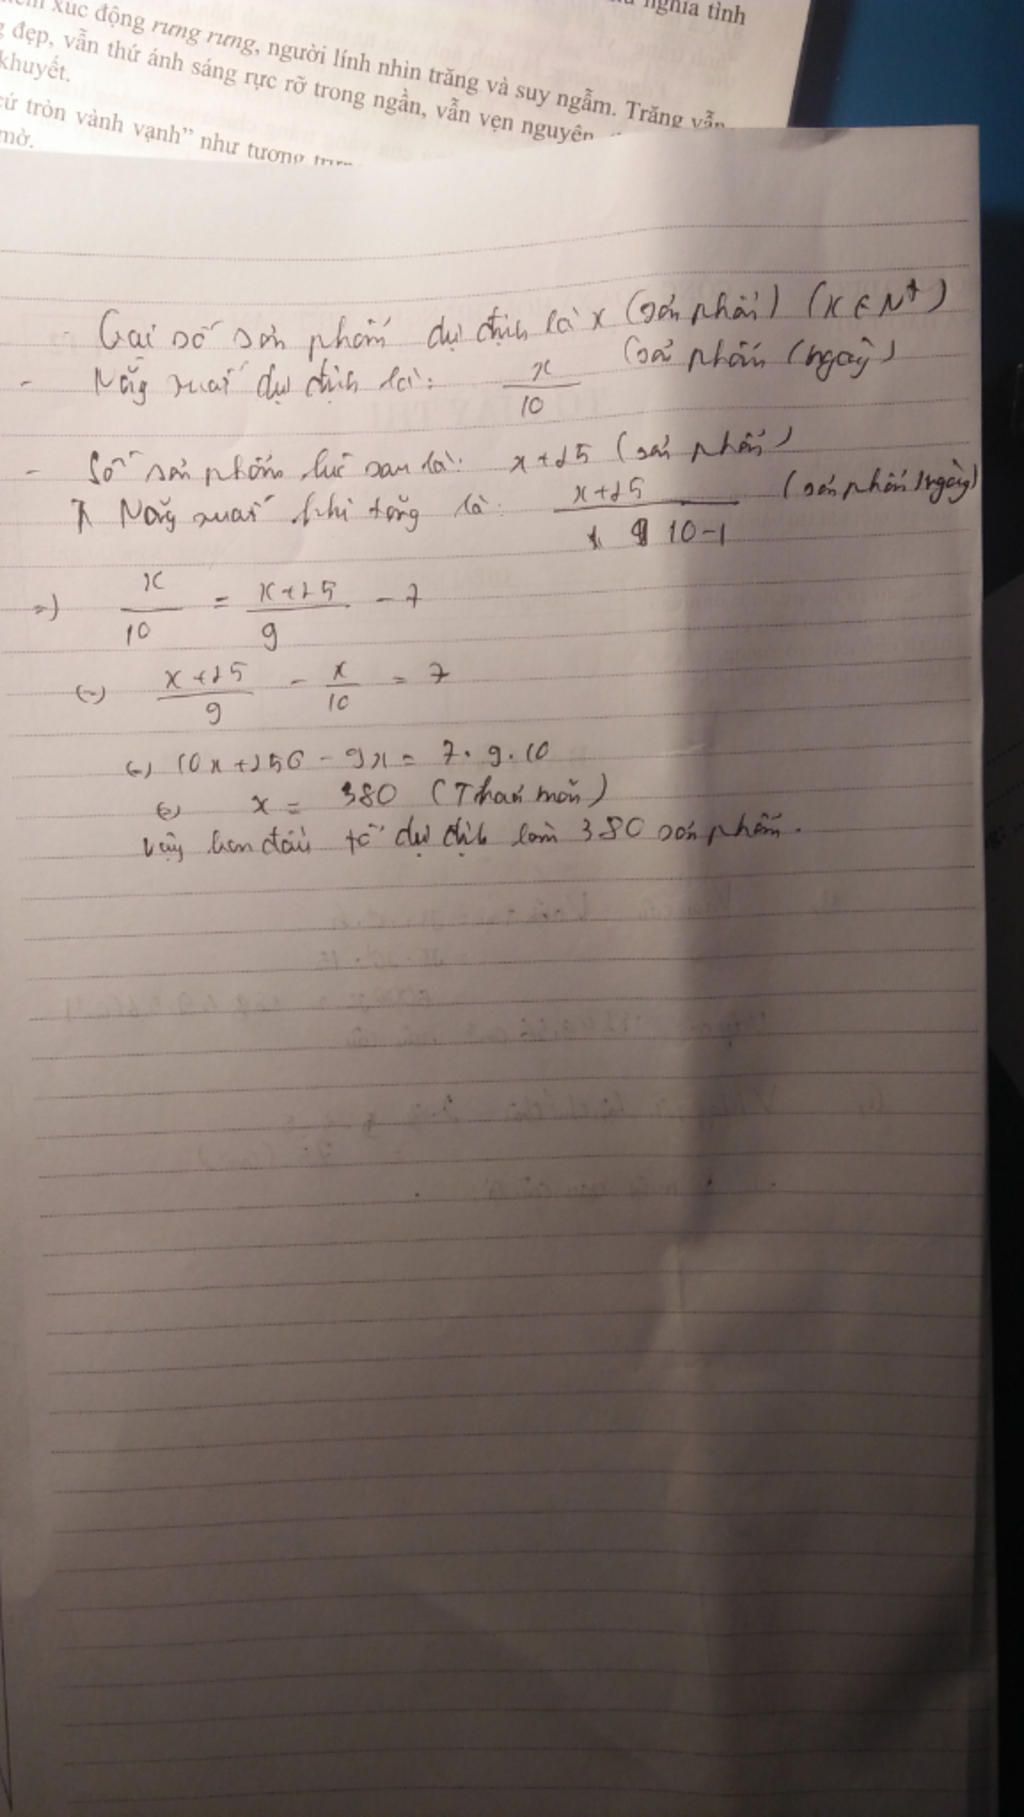 xúc động rưng rưng, người lính nhìn trăng và suy ngẫm. Trăng vẫn
nghĩa tình
đẹp, vẫn thứ ánh sáng rực rỡ trong ngần, vẫn vẹn nguyên
khuyết.
cứ tròn vành vạnh" như tượng trưng
mờ.
Gọi số sản phẩm dự định là x (sản phẩm) (x ∈ N*)
- Năng suất dự định là: x/10 (sản phẩm/ngày)
- Số sản phẩm lúc sau là: x+25 (sản phẩm)
Năng suất khi tăng là: x+25/10-1 (sản phẩm/ngày)
=) x/10 = x+25/9 - 7
(=) x+25/9 - x/10 = 7
(=) 10x+250 - 9x = 7.9.10
(=) x = 380 (Thoả mãn)
Vậy ban đầu tổ dự định làm 380 sản phẩm.